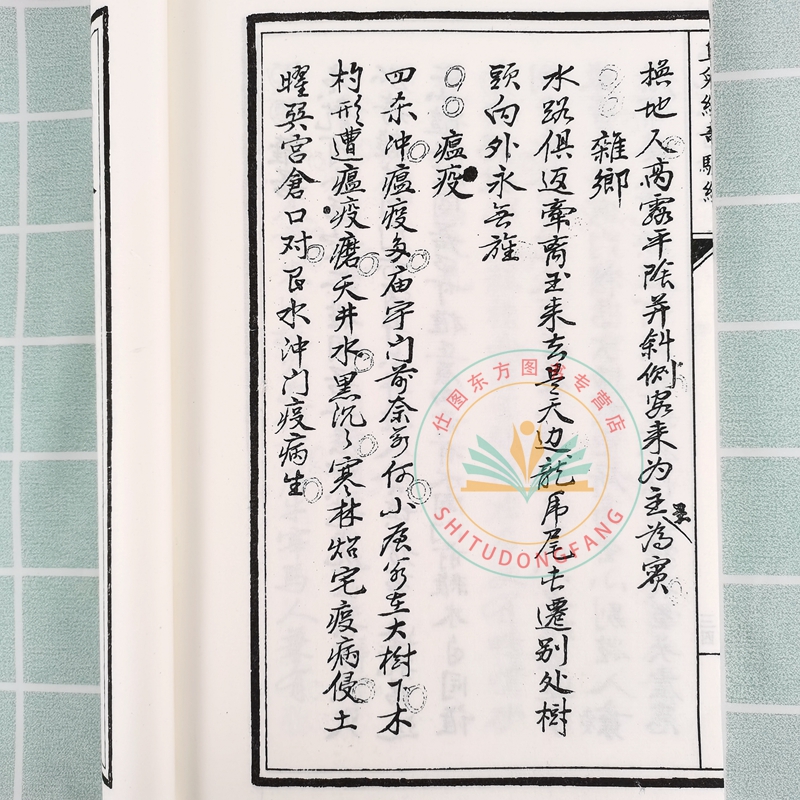 换地人离露平除并斜侧客来为主是为宾
雜鄉
水路俱返牵离玉来去是天边龍虎尾去遷别处樹
頭向外永無旌
瘟疫
四杀沖瘟疫多庙宇门前奈若何小屋若在大樹下木
杓形遭瘟疫磨天井水黑沉々寒林焰宅疫病侵土
曜巽宮倉口对艮水沖门疫病生
仕图东方图书专营店
SHITUDONGFANG